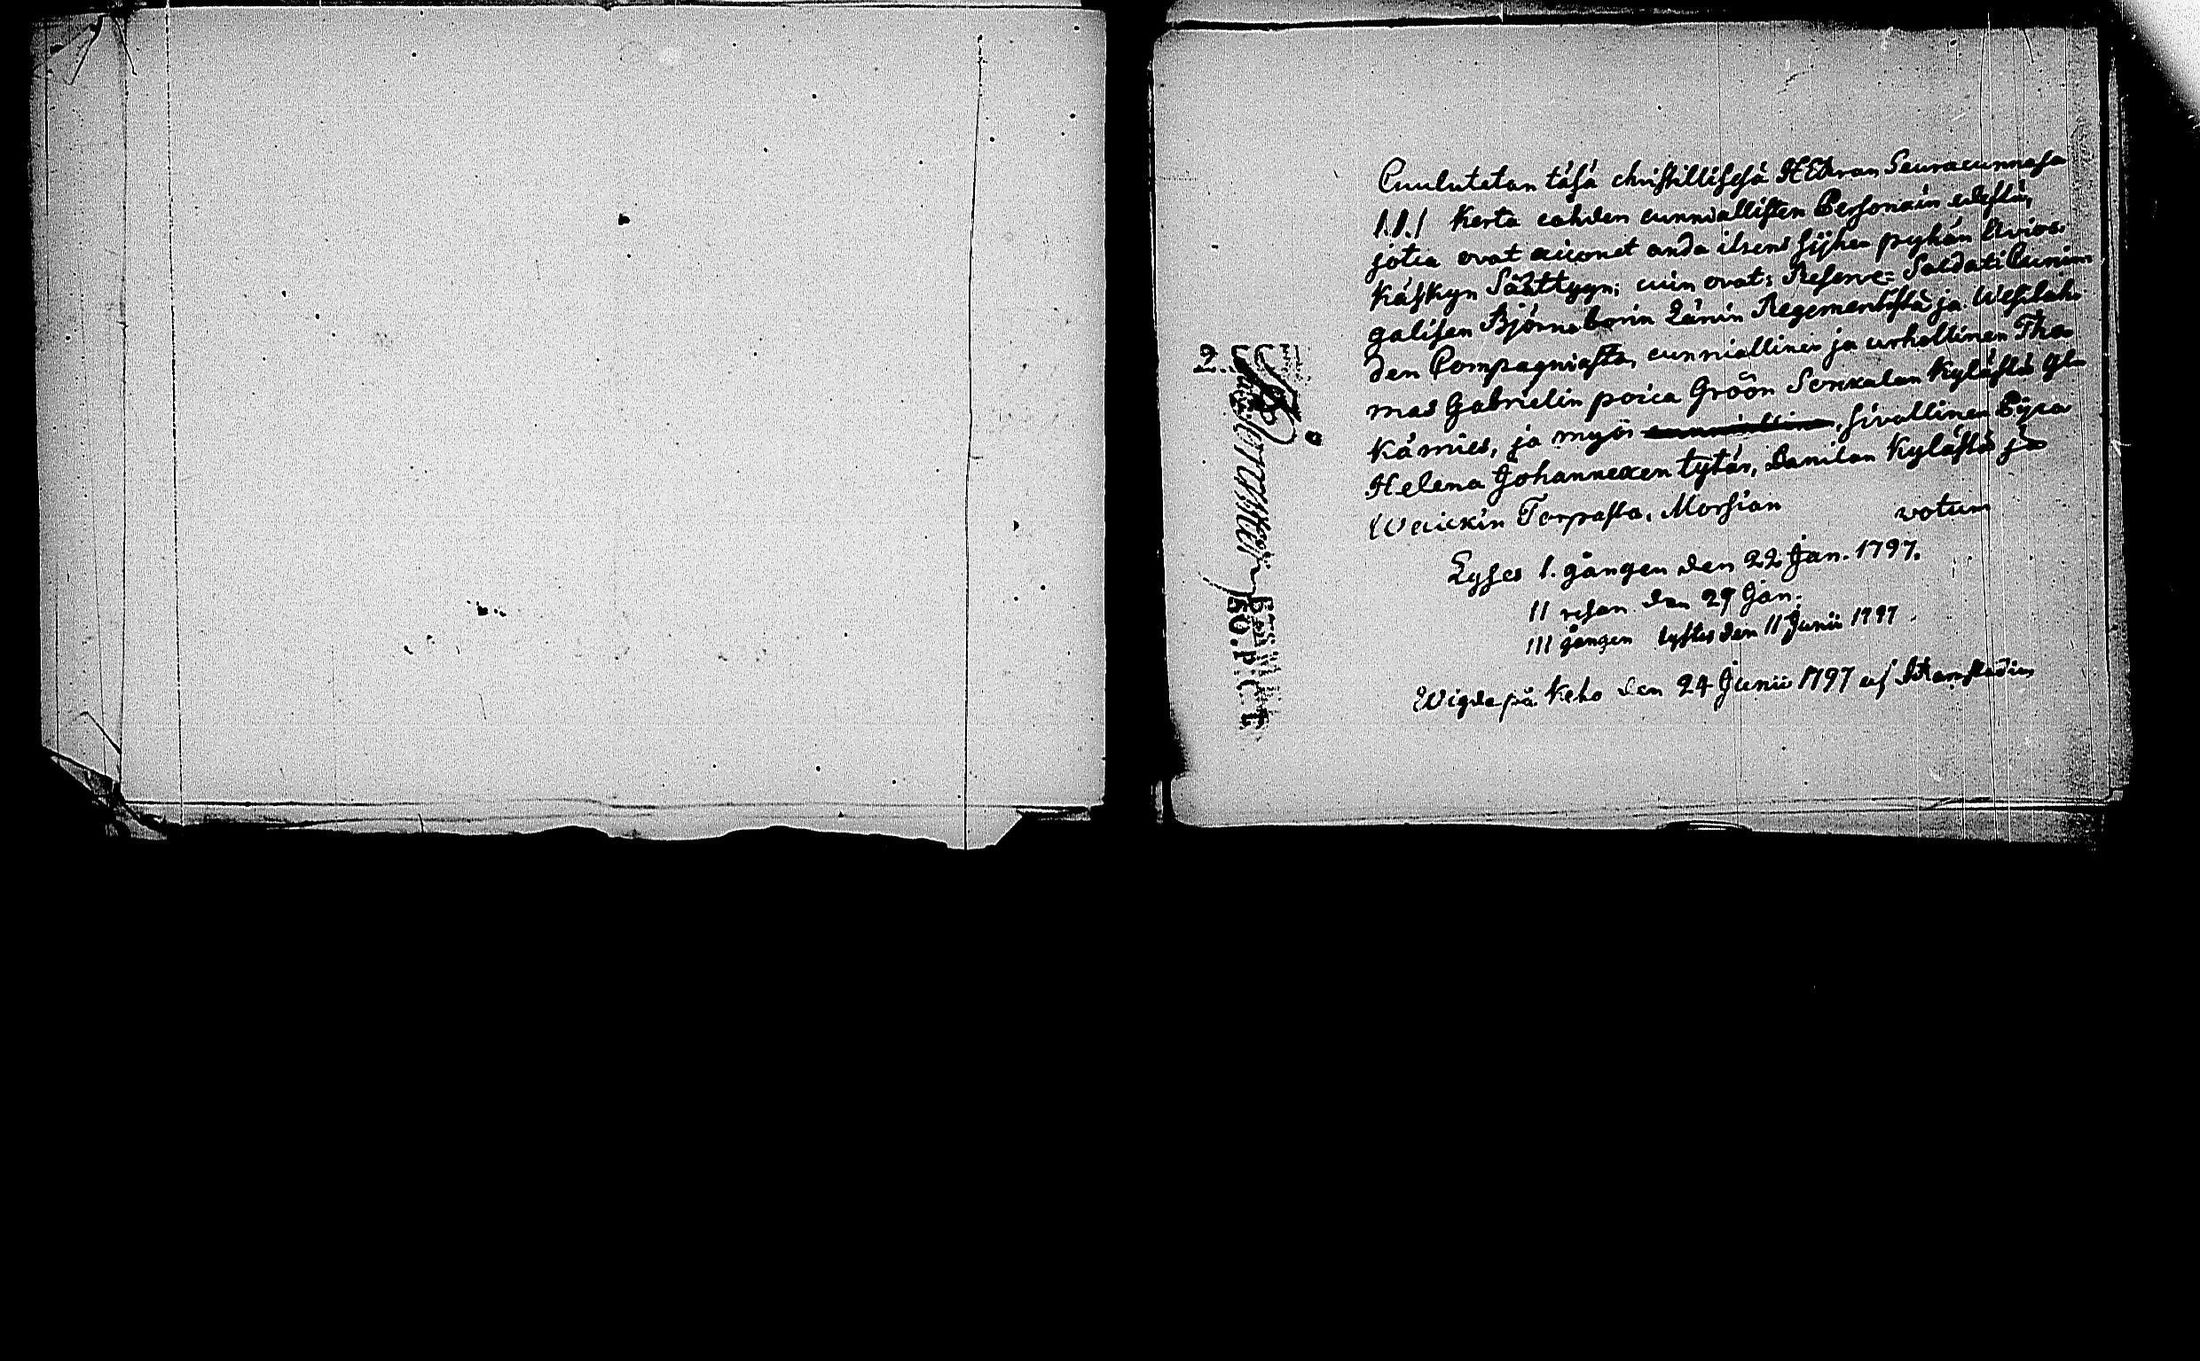 Cuulutetan täsä christillisesä HERran Seuracunnasa
1.1.1 kerta cahden cunniallisten Personain edestä,
jotca ovat aiconet anda itsens sijhen pyhän Avios-
käskyn Säättyyn; cuin ovat: Reserve-Soldati Cunin-
galisen Björneborin Länin Regementistä ja Wesilah-
den Compagniasta, cunniallinen ja urhollinen Tho-
mas Gabrielin poica Gröön Sorkalan kylästä yl-
kämies, ja myös sivallinen Pijca
Helena Johannexen tytär, Lanilan kylästä ja
Torpasta, Morsian votum
Lyses 1. gången den 22 Jan. 1797.
II resan den 29 Jan.
III gången lystes den 11 Junii 1797
Wigde på Keho den 24 Junii 1797 af
2.
50. P. C. T.